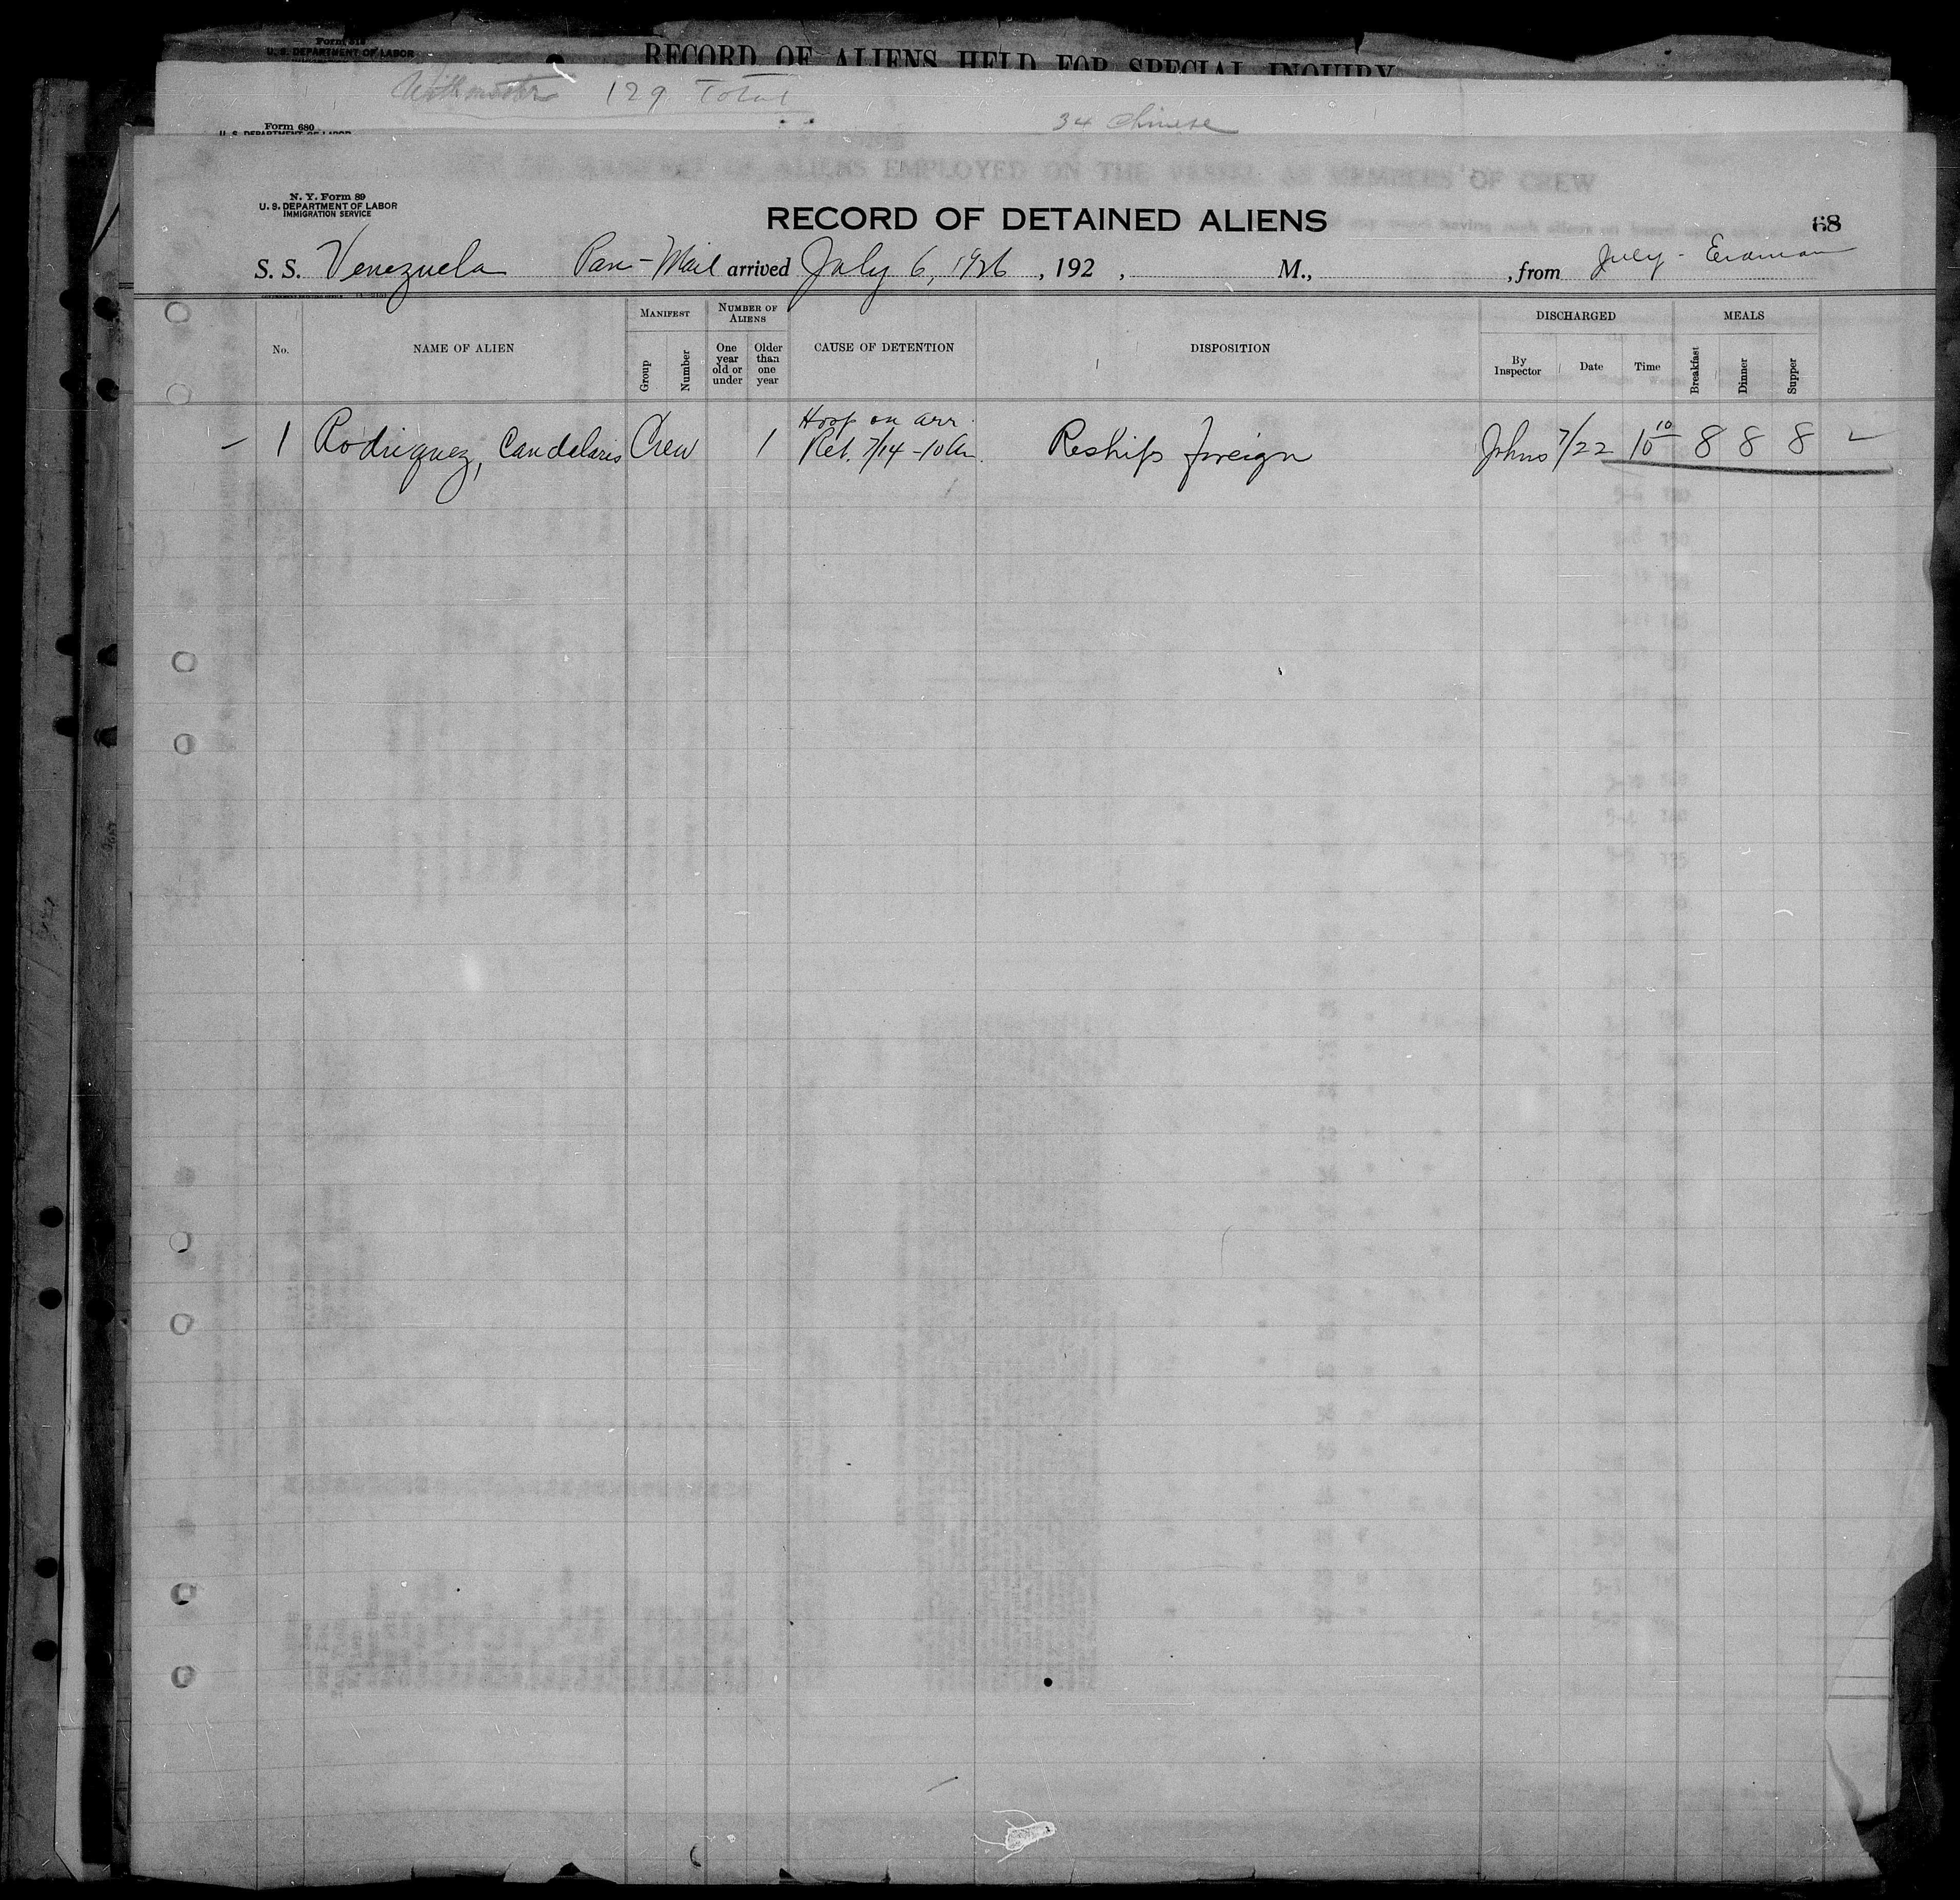 Form
U. S. DEPARTMENT OF LABOR
RECORD OF ALIENS HELD FOR SPECIAL INQUIRY
129 Total
34 Chinese
Form 680
U. S. DEPARTMENT OF LABOR
ALIENS EMPLOYED ON THE VESSEL AS MEMBERS OF CREW
N. Y. Form 89
U. S. DEPARTMENT OF LABOR
IMMIGRATION SERVICE
RECORD OF DETAINED ALIENS
68
S. S. Venezuela Pan-Mail arrived July 6, 1926, 192 , M., , from July -
MANIFEST NUMBER OF ALIENS DISCHARGED MEALS
No. NAME OF ALIEN Group Number One year old or under Older than one year CAUSE OF DETENTION DISPOSITION By Inspector Date Time Breakfast Dinner Supper
Hosp on arr.
– 1 Rodriguez, Candelario Crew 1 Ret. 7/14 - 10 am. Reships foreign Johns 7/22 10 10 8 8 8